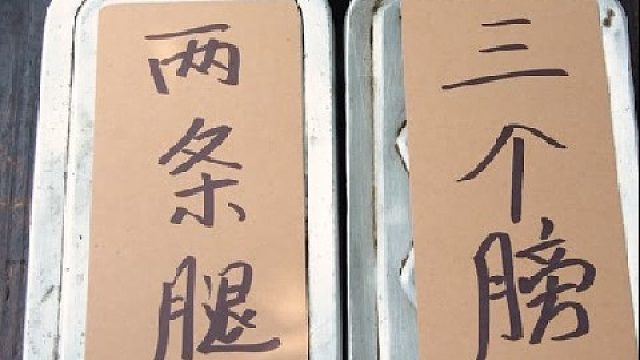 两条腿
三个膀